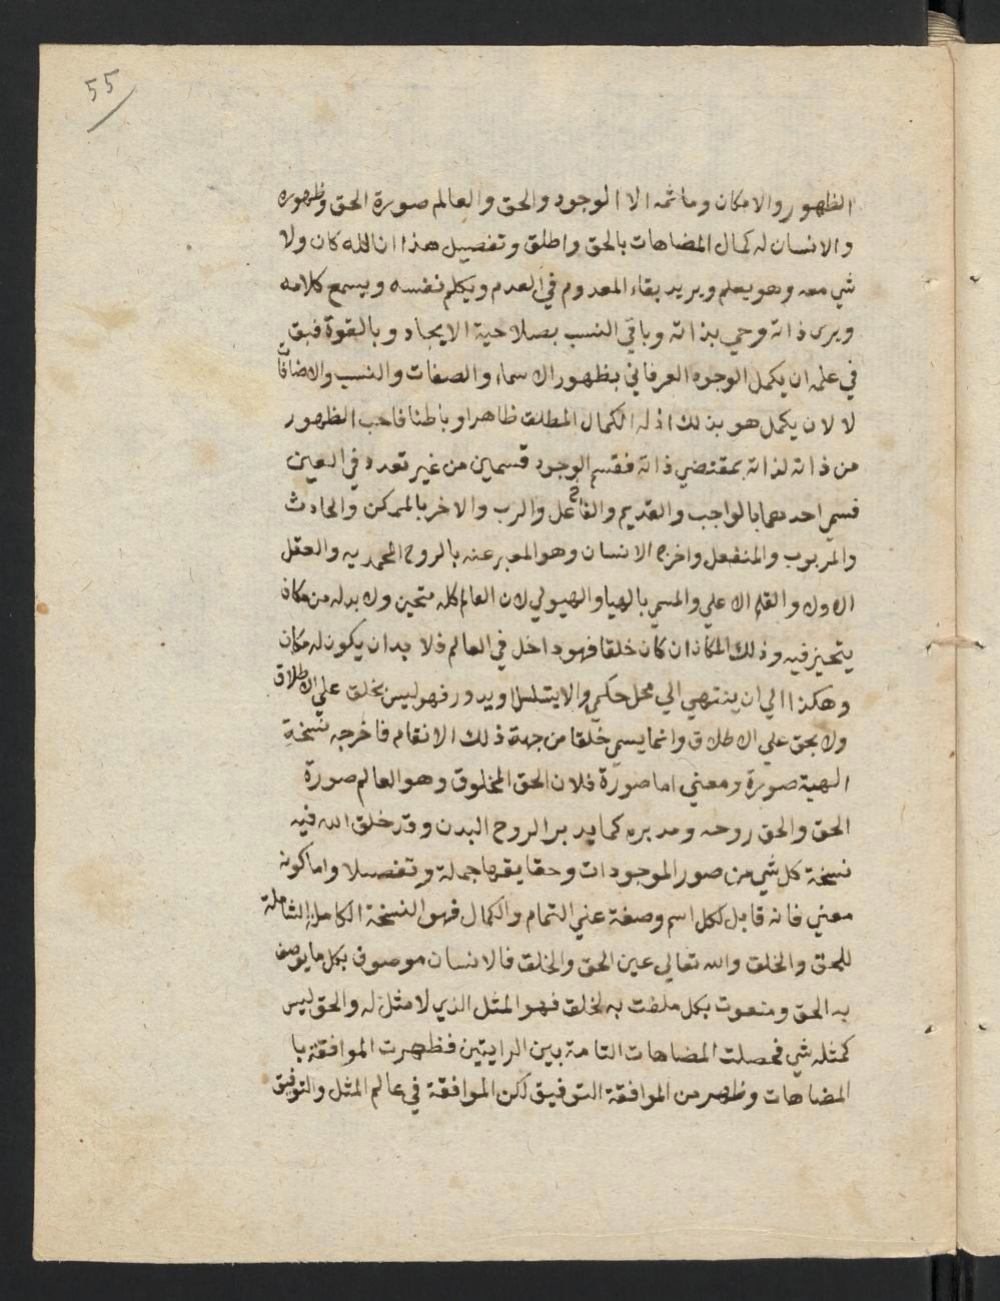 55
الظهور والامكان وماثمه الا الوجود والحق والعالم صورة الحق وظهوره
والانسان له كمال المضاهات بالحق واطلق وتفصيل هذا ان الله كان ولا
شي معه وهو يعلم ويريد بقاء المعدوم في العدم ويكلم نفسه ويسمع كلامه
ويرى ذاته وحي بذاته وباقي النسب بصلاحية الايجاد وبالقوة فبق
في علمه ان يكمل الوجود العرفاني بظهور الاسماء والصفات والنسب والاضافات
لا لان يكمل هو بذلك اذ له الكمال المطلق ظاهرا وباطنا فاحب الظهور
من ذاته لذاته بمقتضي ذاته فقسم الوجود قسمين من غير تعدد في العين
فسمي احدهما بالواجب والقديم والفاعل والرب والاخر بالممكن والحادث
والمربوب والمنفعل واخرج الانسان وهو المعبر عنه بالروح المحمديه والعقل
الاول والقلم الاعلي والمسمي بالهبا والهيولي لان العالم كله متحيز ولا بد له من مكان
يتحيز فيه وذلك المكان ان كان خلقا فهو داخل في العالم فلا بد ان يكون له مكان
وهكذا الي ان ينتهي الي محل حكمي والا يتسلسل او يدور فهو ليس بخلق علي الاطلاق
ولا بحق علي الاطلاق وانما يسمي خلقا من جهة ذلك الانقام فاخرجه نسخة
الهية صورة ومعني اما صورة فلان الحق المخلوق وهو العالم صورة
الحق والحق روحه ومدبره كما يدبر الروح البدن وقد خلق الله فيه
نسخة كل شي من صور الموجودات وحقايقها جملة وتفصيلا واما كونه
معني فانه قابل لكل اسم وصفة عني التمام والكمال فهو النسخة الكاملة الشاملة
للحق والخلق والله تعالي عين الحق والخلق فالانسان موصوف بكل ما يوصف
به الحق ومنعوت بكل ملفت به لخلق فهو المثل الذي لا مثل له والحق ليس
كمثله شي فحصلت المضاهات التامة بين الرايتين فظهرت الموافقة با
المضاهات وظهر من الموافقة التوفيق لكن الموافقة في عالم المثل والتوفيق